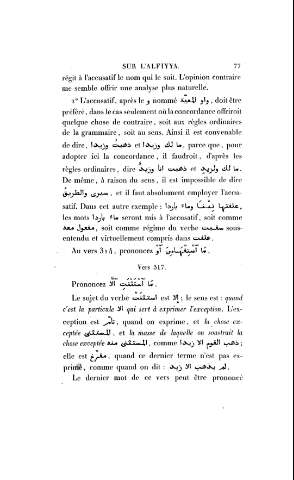 SUR L'ALFIYYA. 77
régit à l'accusatif le nom qui le suit. L'opinion contraire
me semble offrir une analyse plus naturelle.
1° L'accusatif, après le و nommé واو المعيّة, doit être
préféré, dans le cas seulement où la concordance offriroit
quelque chose de contraire, soit aux règles ordinaires
de la grammaire, soit au sens. Ainsi il est convenable
de dire, ذهبتُ وزيدا et ما لك وزيدا, parce que, pour
adopter ici la concordance, il faudroit, d'après les
règles ordinaires, dire ذهبت انا وزيدٌ et ما لك ولزيدٍ.
De même, à raison du sens, il est impossible de dire
سيرى والطريقُ, et il faut absolument employer l'accu-
satif. Dans cet autre exemple : علفتها تِبْنًا وماء باردا,
les mots ماء باردا seront mis à l'accusatif, soit comme
مفعول معه, soit comme régime du verbe سقيت sous-
entendu et virtuellement compris dans علفت.
Au vers 314, مَا اسْتِفْهَامٍ أَوْ.
Vers 317.
Prononcez مَا آسْتَثْنَتِ آلَّا.
Le sujet du verbe استثنت est إلّا; le sens est : quand
c'est la particule الا qui sert à exprimer l'exception. L'ex-
ception est تامّ, quand on exprime, et la chose ex-
ceptée المستثنى, et la masse de laquelle on soustrait la
chose exceptée المستثنى منه, comme ذهب القوم الا زيدا;
elle est مفرّغ, quand ce dernier terme n'est pas ex-
primé, comme quand on dit : لم يذهب الا زيد.
Le dernier mot de ce vers peut être prononcé